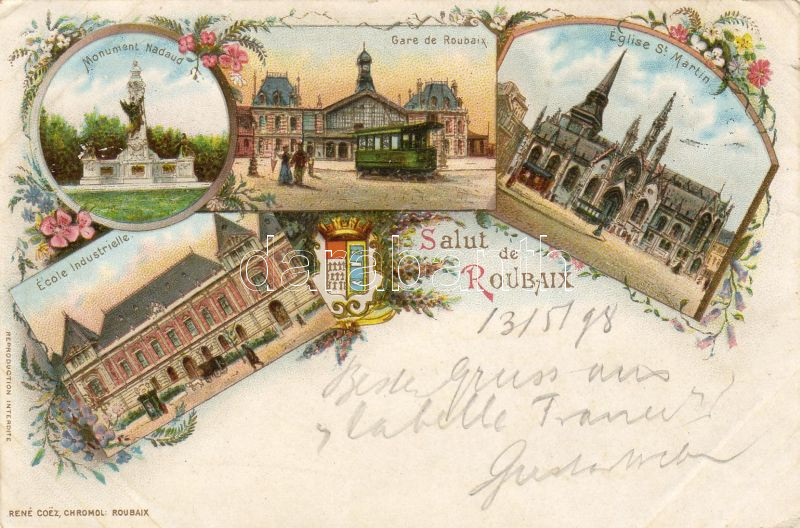 Monument Nadaud
Gare de Roubaix
Église St Martin
École Industrielle
Salut
de
ROUBAIX
darabanth
13/5/98
Bester Gruss aus
la belle France
Gustav Weber
REPRODUCTION INTERDITE
RENÉ COËZ, CHROMOL: ROUBAIX